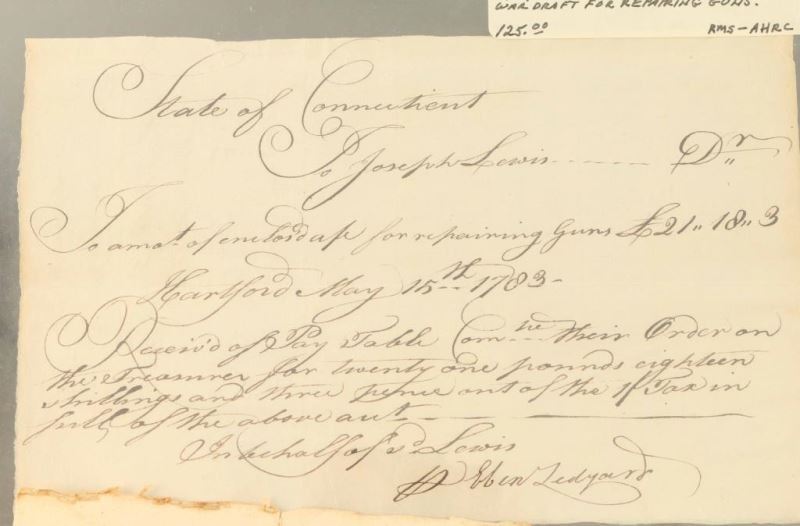 WAR DRAFT FOR REPAIRING GUNS.
125.00 RMS-AHRC
State of Connecticut
To Joseph Lewis ------ Dr
To amot. of enclos'd for repairing Guns £21"18"3
Hartford May 15th 1783-
Receiv'd of Pay Table Comtee their Order on
the Treasurer for twenty one pounds eighteen
shillings and three pence out of the Tax in
full of the above
In behalf of sd Lewis
Eben Ledyard